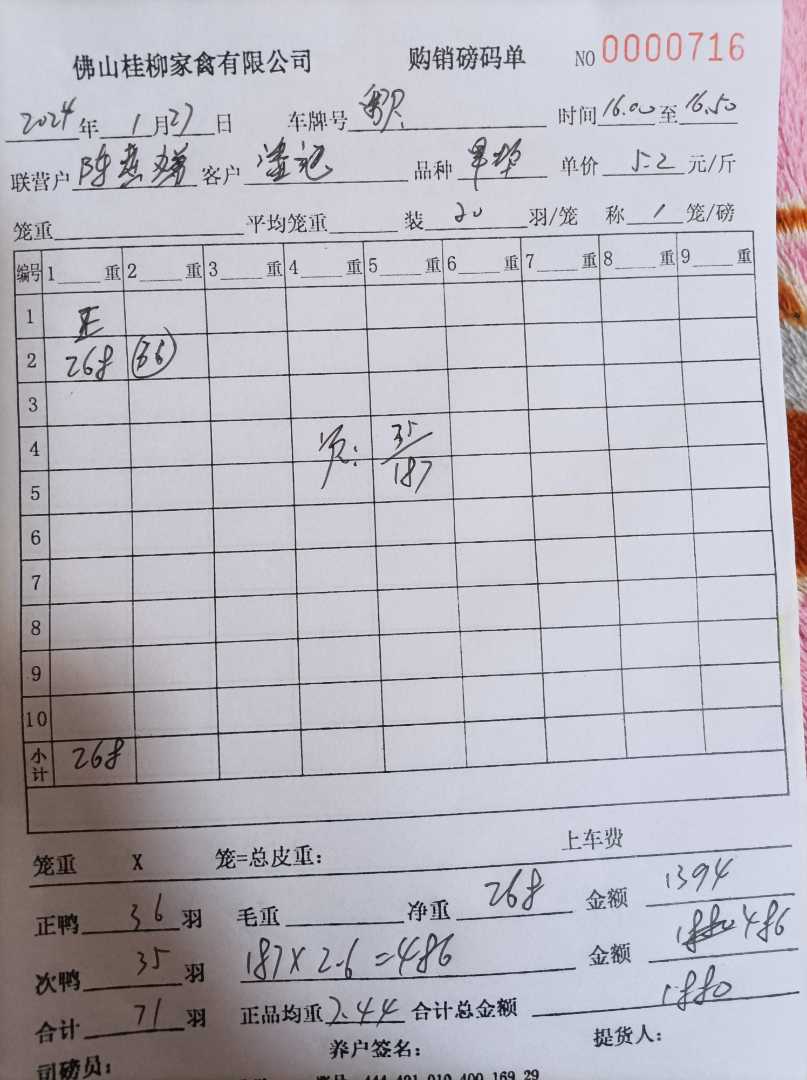 佛山桂柳家禽有限公司 购销磅码单 NO 0000716
2024年1月27日 车牌号 时间16.00至16.50
联营户陈燕嫦 客户 品种 单价5.2元/斤
笼重 平均笼重 装20羽/笼 称1笼/磅
编号 1 重 2 重 3 重 4 重 5 重 6 重 7 重 8 重 9 重
1 正
2 268 (36)
3
4 次: 35
5 187
6
7
8
9
10
小计 268
笼重 X 笼=总皮重: 上车费
正鸭36羽 毛重 净重268 金额1394
次鸭35羽 187X2.6=486 金额 486
合计71羽 正品均重2.44 合计总金额1880
养户签名: 提货人:
司磅员: